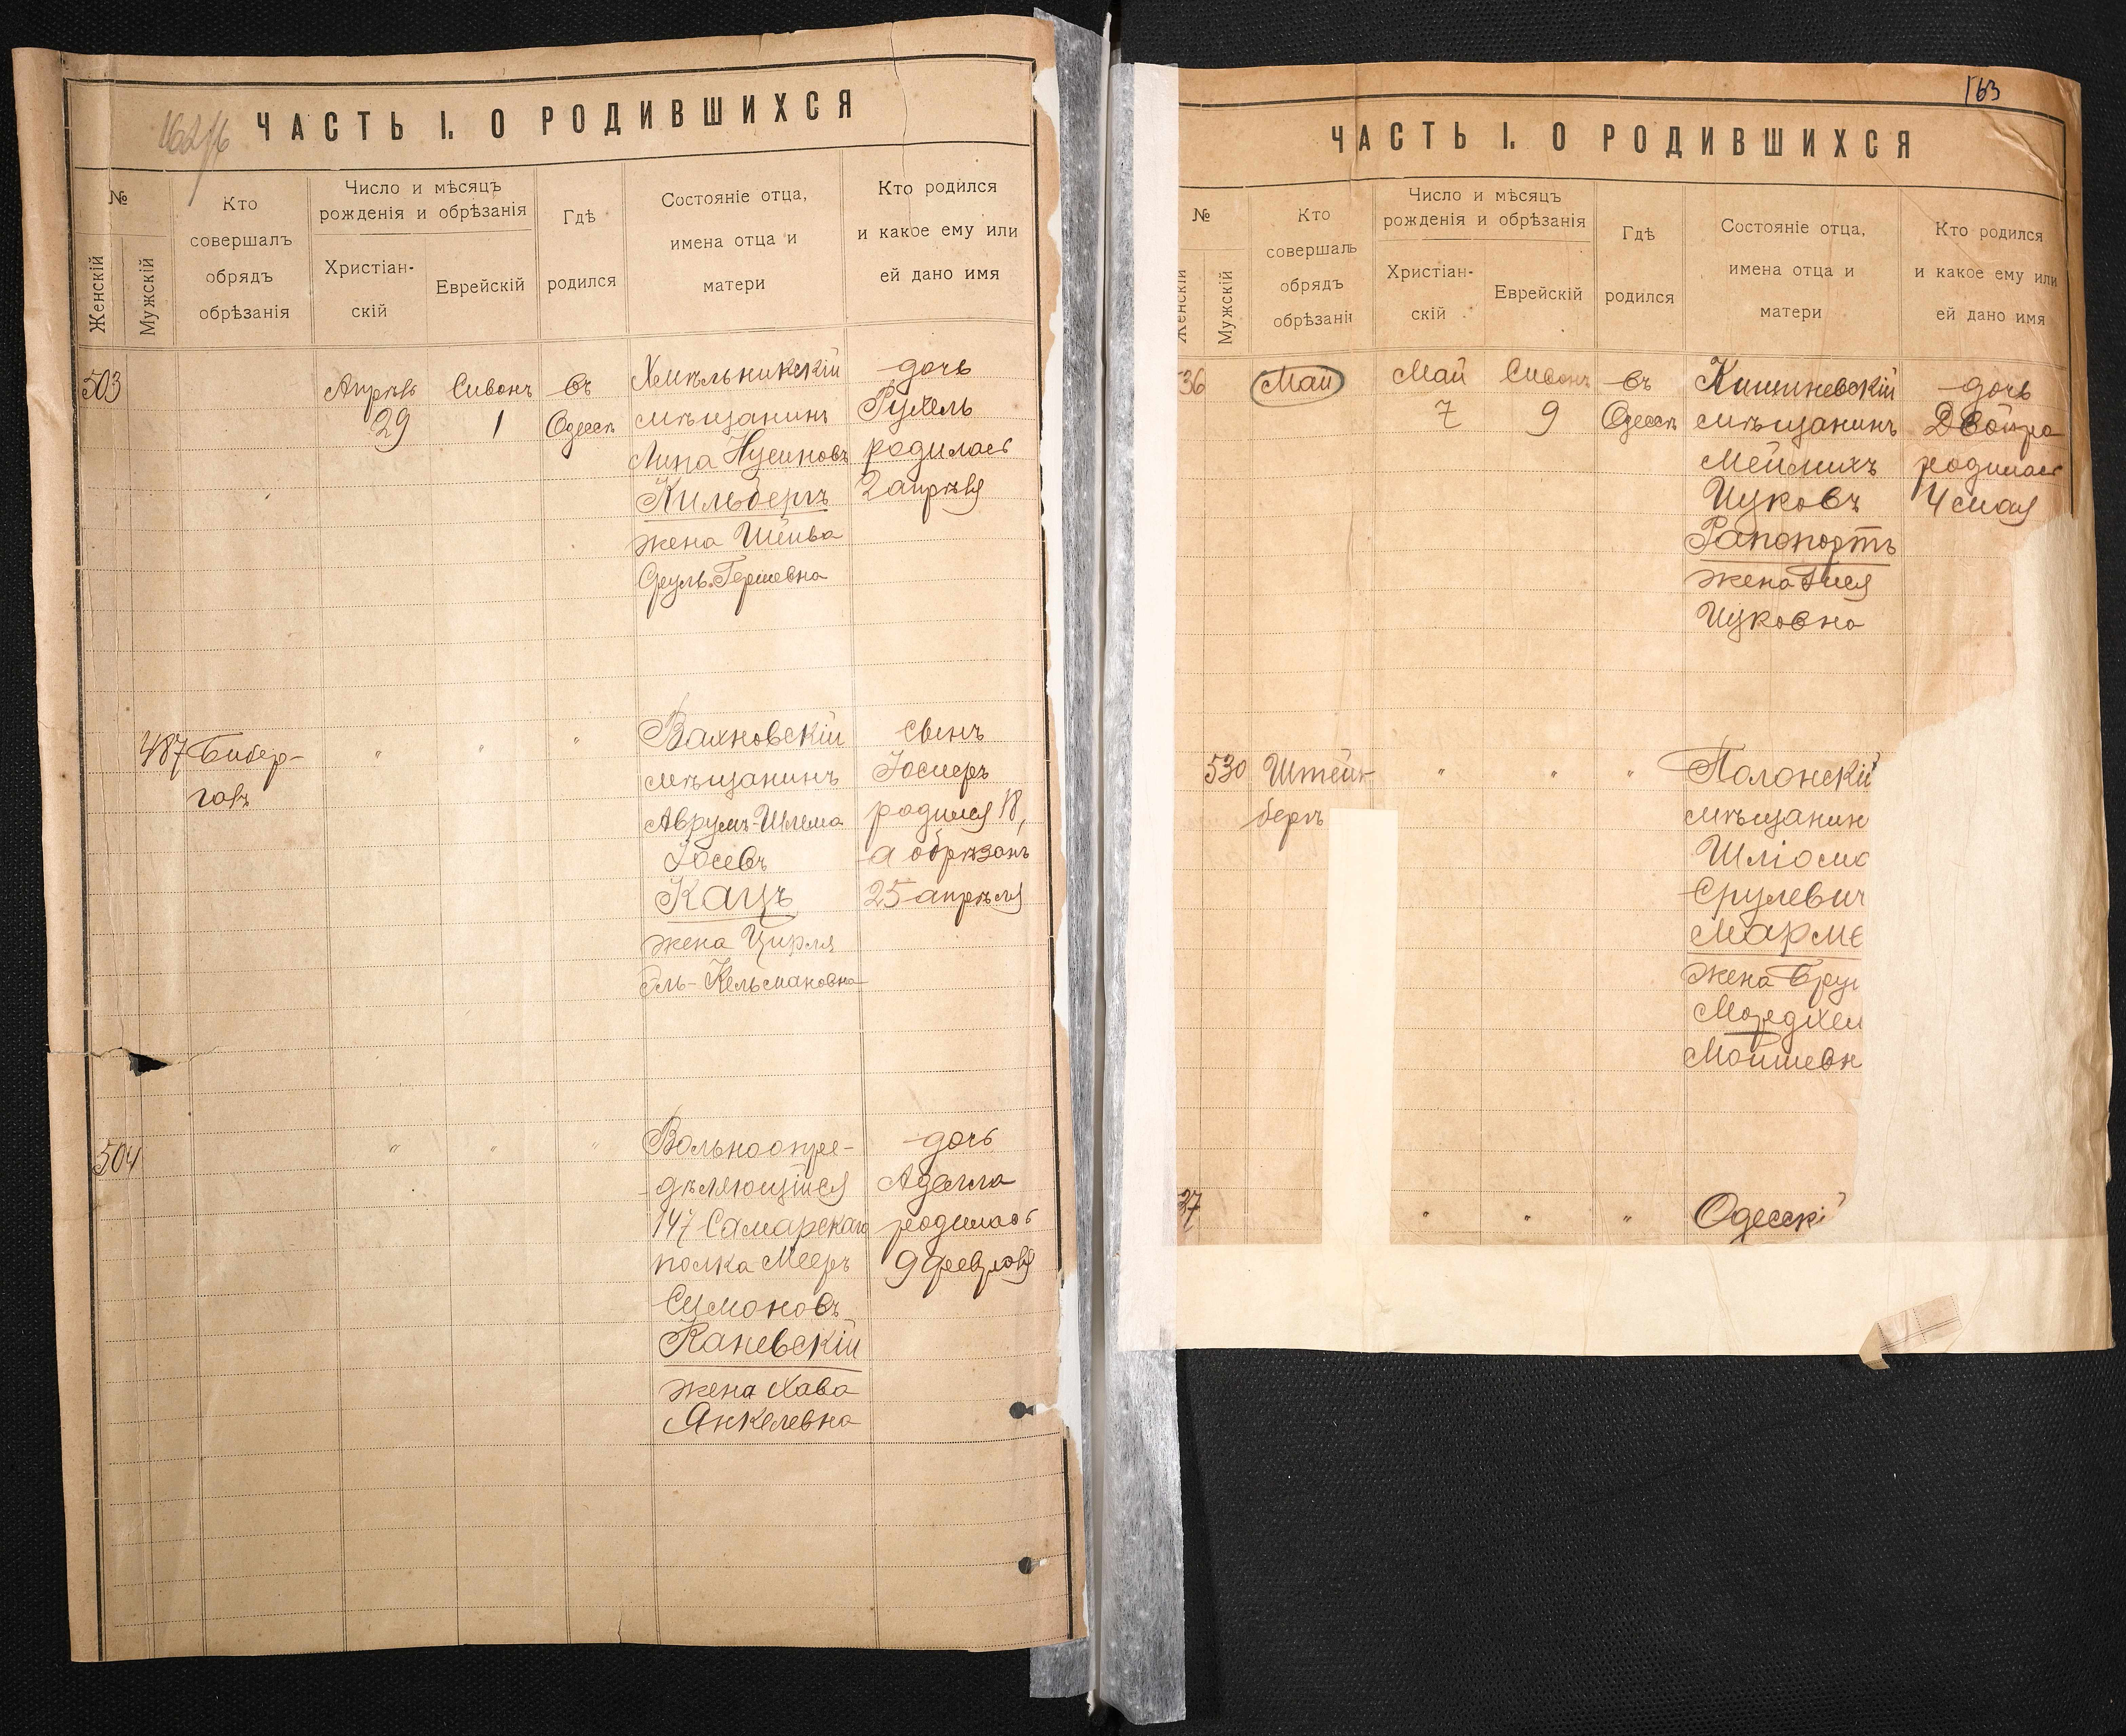 ЧАСТЬ I. О РОДИВШИХСЯ
№
Женскій
Мужскій
Кто
совершалъ
обрядъ
обрѣзанія
Число и мѣсяцъ
рожденія и обрѣзанія
Христіан-
скій
Еврейскій
Гдѣ
родился
Состояніе отца,
имена отца и
матери
Кто родился
и какое ему или
ей дано имя
503
Апрѣль
29
Сивонъ
1
въ
Одессѣ
Хмѣльникскій
мѣщанинъ
Липа Нусиновъ
Кильбергъ
жена Шейва
Сруль-Гершевна
дочь
Рухель
родилась
2 апрѣля
487
Бибер-
галъ
"
"
"
Вахновскій
мѣщанинъ
Аврумъ-Шлема
Іосевъ
Кацъ
жена Цирля
Эль-Кельмановна
сынъ
Іосперъ
родился 18,
а обрѣзанъ
25 апрѣля
504
"
"
"
Вольноопре-
дѣляющійся
147 Самарскаго
полка Мееръ
Сумоновъ
Каневскій
жена Хава
Янкелевна
дочь
Аделла
родилась
9 февраля
163
ЧАСТЬ I. О РОДИВШИХСЯ
№
Женскій
Мужскій
Кто
совершалъ
обрядъ
обрѣзані
Число и мѣсяцъ
рожденія и обрѣзанія
Христіан-
скій
Еврейскій
Гдѣ
родился
Состояніе отца,
имена отца и
матери
Кто родился
и какое ему или
ей дано имя
36
Май
Май
7
Сивонъ
9
въ
Одессѣ
Кишиневскій
мѣщанинъ
Мейлихъ
Ицковъ
Рапопортъ
жена Гися
Ицковна
дочь
Двойра
родилась
4 мая
530
Штейн
бергъ
"
"
"
Полонскій
мѣщанин
Шліома
Срулевич
Марме
жена Бру
Мордхеи
Мошиевн
37
"
"
"
Одесскі